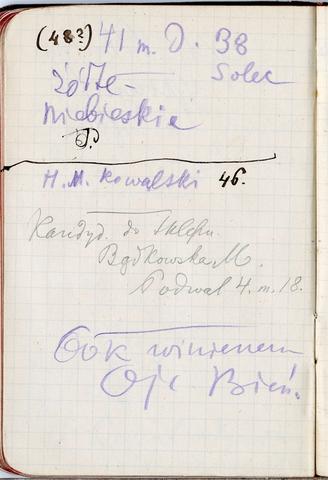 (48?) 41 m. D. 38
Solec
żółte-
niebieskie
H. M. Kowalski 46.
Kandyd. do sklepu.
Bądkowska M.
Podwal 4. m. 18.
winienem
Ojc Bień.